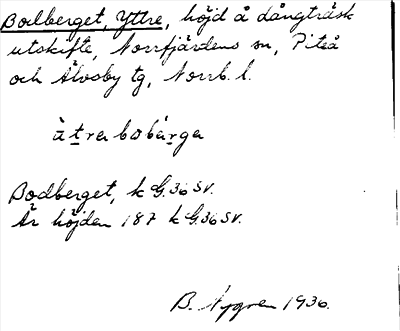 Bodberget, Yttre, höjd å Långträsk
utskifte, Norrfjärdens sn, Piteå
och Älvsby tg, Norrb. l.
àtrebobárga
Bodberget, k G.36 SV.
Är höjden 187 k G.36 SV.
B. Nygren 1936.